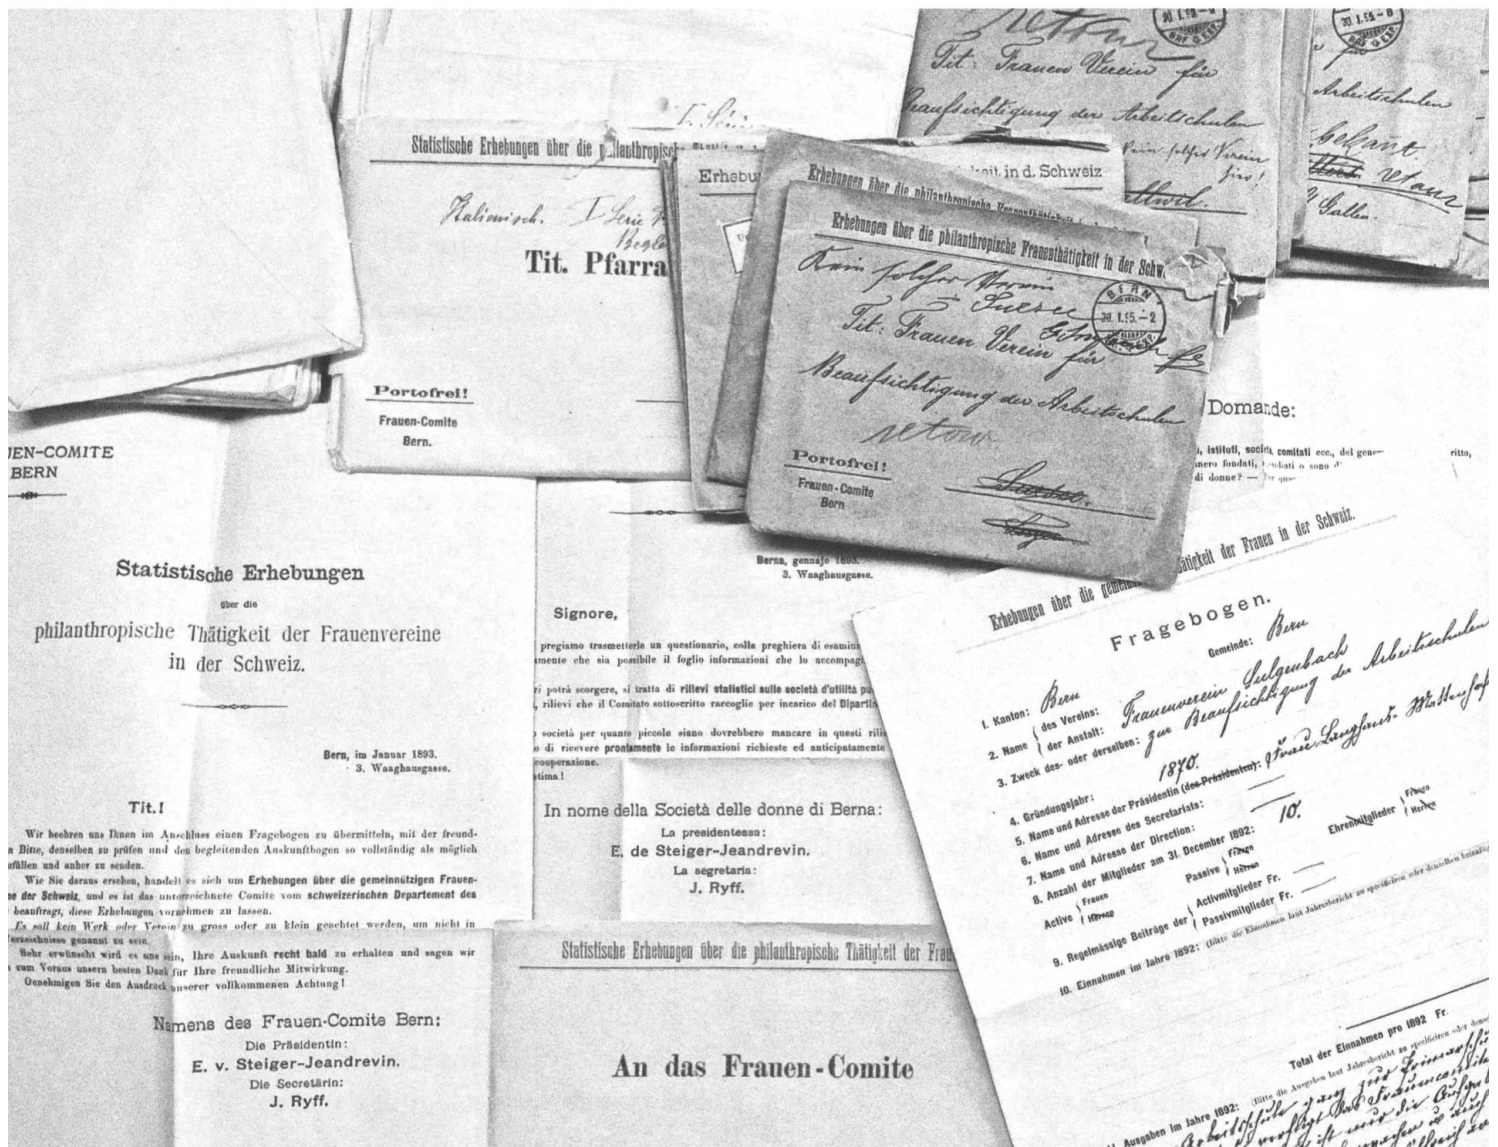 retour
Tit: Frauen Verein für
Beaufsichtigung der Arbeitschulen
Kein solcher Verein
hier!
30.I.95.-8
Arbeitschulen
retour
Gallen.
Statistische Erhebungen über die philanthropisc
Italienisch. I Serie
Tit. Pfarra
Portofrei!
Frauen-Comite
Bern.
Erhebu
in d. Schweiz
Erhebungen über die philanthropische Frauenthätigkeit
Erhebungen über die philanthropische Frauenthätigkeit in der Schw
Kein solcher Verein
Sursee
BERN
30.I.95.-2
Tit: Frauen Verein für
Beaufsichtigung der Arbeitschulen
retour
Portofrei!
Frauen-Comite
Bern
UEN-COMITE
BERN
Statistische Erhebungen
über die
philanthropische Thätigkeit der Frauenvereine
in der Schweiz.
Bern, im Januar 1893.
3. Waaghausgasse.
Tit.!
Wir beehren uns Ihnen im Anschluss einen Fragebogen zu übermitteln, mit der freund-
n Bitte, denselben zu prüfen und den begleitenden Auskunftbogen so vollständig als möglich
ufüllen und anher zu senden.
Wie Sie daraus ersehen, handelt es sich um Erhebungen über die gemeinnützigen Frauen-
ne der Schweiz, und es ist das unterzeichnete Comite vom schweizerischen Departement des
beauftragt, diese Erhebungen vornehmen zu lassen.
Es soll kein Werk oder Verein zu gross oder zu klein geachtet werden, um nicht in
erzeichnisse genannt zu sein.
Sehr erwünscht wird es uns sein, Ihre Auskunft recht bald zu erhalten und sagen wir
zum Voraus unsern besten Dank für Ihre freundliche Mitwirkung.
Genehmigen Sie den Ausdruck unserer vollkommenen Achtung!
Namens des Frauen-Comite Bern:
Die Präsidentin:
E. v. Steiger-Jeandrevin.
Die Secretärin:
J. Ryff.
Berna, gennajo 1893.
3. Waaghausgasse.
Signore,
pregiamo trasmetterle un questionario, colla preghiera di esamina
amente che sia possibile il foglio informazioni che lo accompag
ri potrà scorgere, si tratta di rilievi statistici sulle società d'utilità pu
, rilievi che il Comitato sottoscritto raccoglie per incarico del Dipartim
società per quanto piccole siano dovrebbero mancare in questi rilie
o di ricevere prontamente le informazioni richieste ed anticipatamente
cooperazione.
stima!
In nome della Società delle donne di Berna:
La presidentessa:
E. de Steiger-Jeandrevin.
La segretaria:
J. Ryff.
Statistische Erhebungen über die philanthropische Thätigkeit der Frau
An das Frauen-Comite
Domande:
, istituti, società, comitati ecc., del gene
ritto,
nero fondati, fondati o sono
di donne? —
Erhebungen über die gemein
tätigkeit der Frauen in der Schweiz.
Fragebogen.
Gemeinde: Bern
1. Kanton: Bern
2. Name { des Vereins: Frauenverein Sulgenbach
der Anstalt:
3. Zweck des- oder derselben: zur Beaufsichtigung der Arbeitschulen
4. Gründungsjahr: 1870.
5. Name und Adresse der Präsidentin (des Präsidenten): Frau Langhans- Mattenhof
6. Name und Adresse des Secretariats:
7. Name und Adresse der Direction:
8. Anzahl der Mitglieder am 31. December 1892: 10.
Active { Frauen Herren
Passive { Frauen Herren
Ehrenmitglieder { Frauen Herren
9. Regelmässige Beiträge der { Activmitglieder Fr.
Passivmitglieder Fr.
10. Einnahmen im Jahre 1892: (Bitte die Einnahmen laut Jahresbericht zu specificiren oder denselben beizufü
Total der Einnahmen pro 1892 Fr.
Ausgaben im Jahre 1892: (Bitte die Ausgaben laut Jahresbericht zu specificiren oder dense